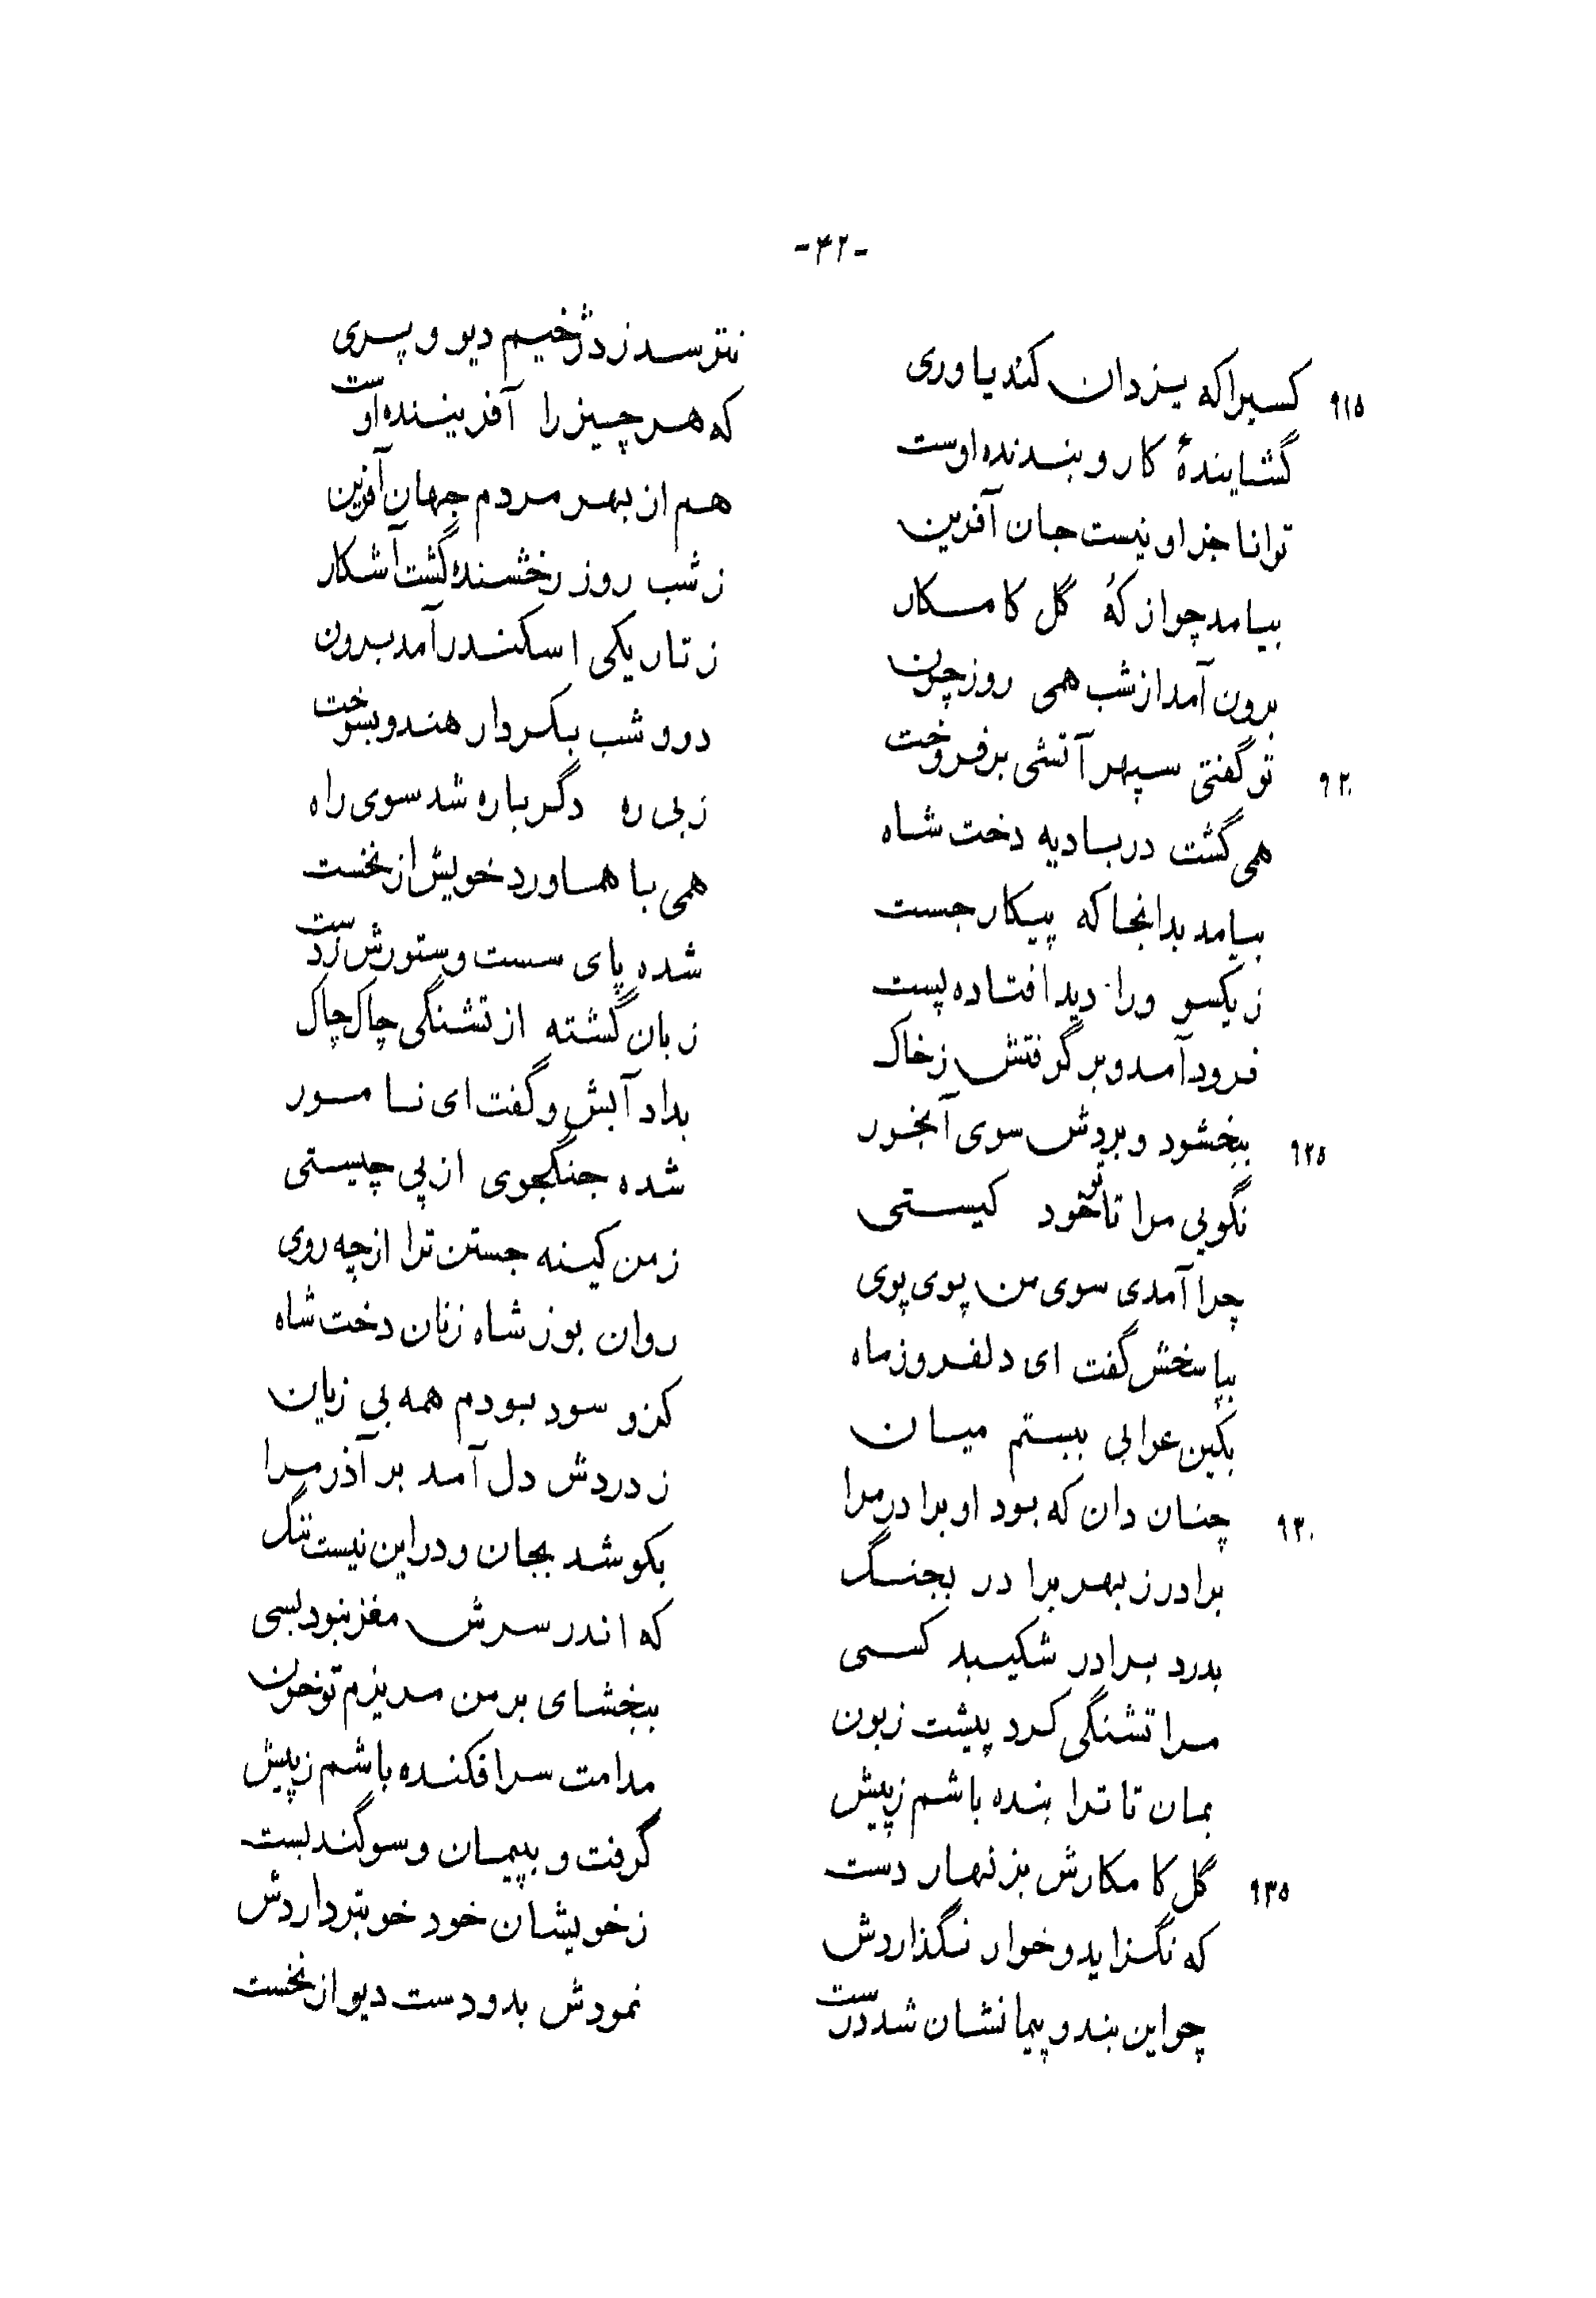 -۴۲-
۹۱۵ کسیرا که یزدان کند یاوری نترسد ز دژخیم دیو و پری
گشایندهٔ کار و بندنده اوست که هر چیز را آفریننده اوست
توانا جز او نیست جان آفرین هم از بهر مردم جهان آفرین
بیامد چو از که گل کامکار ز شب روز رخشنده گشت آشکار
برون آمد از شب همی روز چون ز تاریکی اسکندر آمد برون
۹۲۰ تو گفتی سپهر آتشی برفروخت درو شب بکردار هندو بسوخت
همی گشت در بادیه دخت شاه ز بی ره دگر باره شد سوی راه
بیامد بدانجا که پیکار جست همی با هماورد خویش از نخست
ز یکسو ورا دید افتاده پست شده پای سست و ستورش ز دست
فرود آمد و بر گرفتش ز خاک زبان گشته از تشنگی چاک چاک
۹۲۵ ببخشود و بردش سوی آبخور بداد آبش و گفت ای نامور
نگویی مرا تا تو خود کیستی شده جنگجوی از پی چیستی
چرا آمدی سوی من پوی پوی ز من کینه جستن ترا از چه روی
بپاسخش گفت ای دلفروز ماه روان بوز شاه زنان دخت شاه
بکین عرابی ببستم میان کزو سود بودم همه بی زیان
۹۳۰ چنان دان که بود او برادر مرا ز دردش دل آمد بر آذر مرا
برادر ز بهر برادر بجنگ بکوشد بجان و در این نیست ننگ
بدرد برادر شکیبد کسی که اندر سرش مغز نبود بسی
مرا تشنگی کرد پیشت زبون ببخشای بر من مریزم تو خون
بمان تا ترا بنده باشم ز پیش مدامت سرافکنده باشم ز پیش
۹۳۵ گل کامکارش بزنهار دست گرفت و بپیمان و سوگند بست
که نگزاید و خوار نگذاردش ز خویشان خود خوبتر داردش
چو این بند و پیمانشان شد درست نمودش بدو دست دیو از نخست